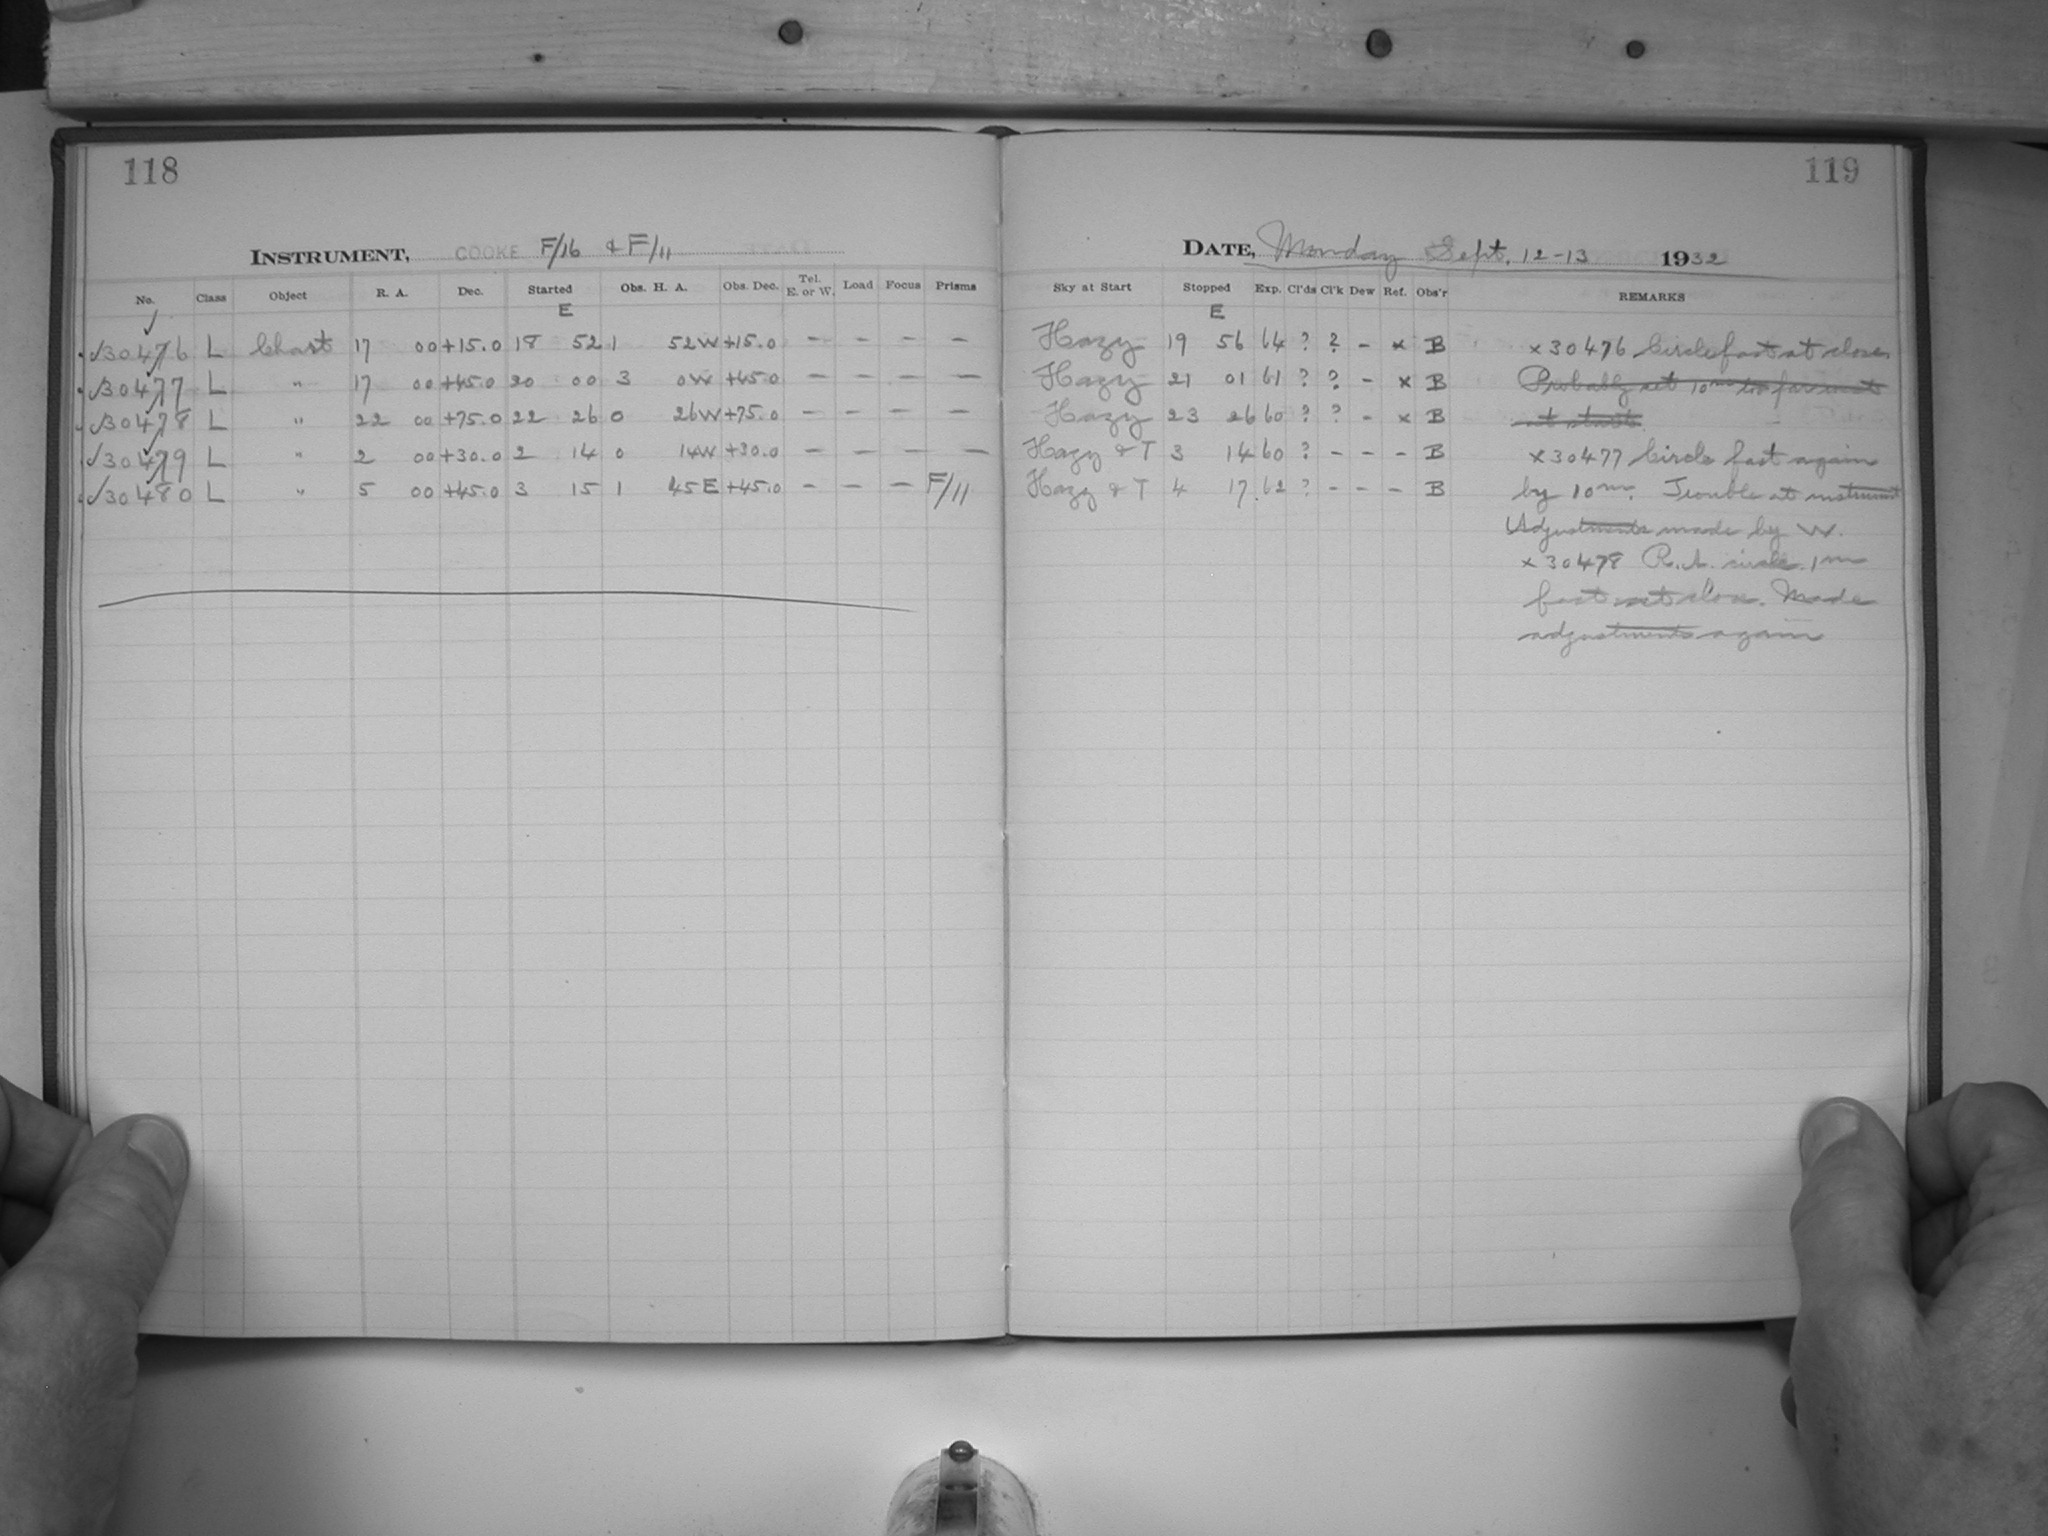 118
INSTRUMENT, COOKE F/16 & F/11
No. Class Object R. A. Dec. Started Obs. H. A. Obs. Dec. Tel. E. or W. Load Focus Prisms
E
√30476 L Chart 17 00 +15.0 18 52 1 52W +15.0 – – – –
√30477 L " 17 00 +45.0 20 00 3 0W +45.0 – – – –
√30478 L " 22 00 +75.0 22 26 0 26W +75.0 – – – –
√30479 L " 2 00 +30.0 2 14 0 14W +30.0 – – – –
√30480 L " 5 00 +45.0 3 15 1 45E +45.0 – – – F/11
119
DATE, Monday Sept. 12-13 1932
Sky at Start Stopped Exp. Cl'ds Cl'k Dew Ref. Obs'r REMARKS
E
Hazy 19 56 64 ? ? – x B x 30476 Circle fast at close
Hazy 21 01 61 ? ? – x B Probably set 10m too far west
Hazy 23 26 60 ? ? – x B at start.
Hazy & T 3 14 60 ? – – – B x 30477 Circle fast again
Hazy & T 4 17 62 ? – – – B by 10m. Trouble at instrument
Adjustments made by W.
x 30478 R.A. circle 1m
fast at close. Made
adjustments again